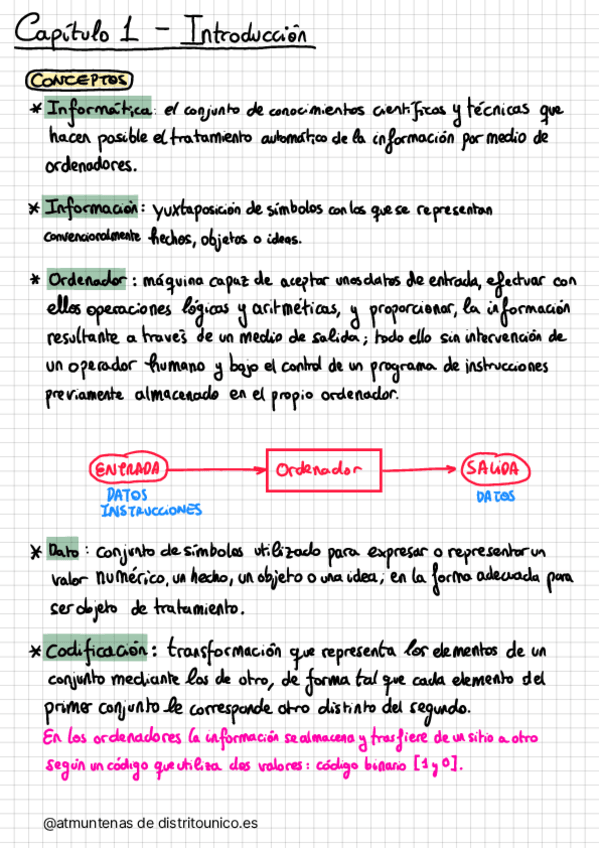 Capítulo 1 - Introducción
CONCEPTOS
* Informática: el conjunto de conocimientos científicos y técnicas que
hacen posible el tratamiento automático de la información por medio de
ordenadores.
* Información: yuxtaposición de símbolos con los que se representan
convencionalmente hechos, objetos o ideas.
* Ordenador: máquina capaz de aceptar unos datos de entrada, efectuar con
ellos operaciones lógicas y aritméticas, y proporcionar, la información
resultante a través de un medio de salida; todo ello sin intervención de
un operador humano y bajo el control de un programa de instrucciones
previamente almacenado en el propio ordenador.
ENTRADA Ordenador SALIDA
DATOS DATOS
INSTRUCCIONES
* Dato: conjunto de símbolos utilizado para expresar o representar un
valor numérico, un hecho, un objeto o una idea; en la forma adecuada para
ser objeto de tratamiento.
* Codificación: transformación que representa los elementos de un
conjunto mediante los de otro, de forma tal que cada elemento del
primer conjunto le corresponde otro distinto del segundo.
En los ordenadores la información se almacena y trasfiere de un sitio a otro
según un código que utiliza dos valores: código binario [1 y 0].
@atmuntenas de distritounico.es